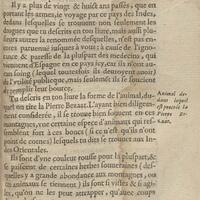 Il y a plus de vingt & huict ans passés, que en
portant les armes, ie voyage par ce pays des Indes,
desquelles se trouuent non seulement les
drogues que tu descris en ton liure, mais aussi plu-
autres à la renommée desquelles, n'est pas en-
paruenue iusques à vous: à cause de l'igno-
& paresse de la pluspart des medecins, qui
viennent d'Espagne en ce pays icy, car ils n'ont au-
cun soing (lequel toutesfois ils deuroyent auoir)
de l'vtilité publique, mais seulement ils se soucient
de remplir leur bource.
Tu descris en ton liure la forme de l'animal, du-
quel on tire la Pierre Bezaar. L'ayant bien diligem-
ment considerée, il se trouue bien souuent en ces
montagnes, vne certaine espece d'animaux qui res-
semblent fort à ces boucs (si ce n'est qu'ils n'ont
point de cornes) lesquels tu dis se trouuer aux In-
des Orientales.
Ils sont d'vne couleur rousse pour la pluspart, &
se paissent de certaines herbes soueraines (des-
quelles y a grande abondance aux montagnes, où
ces animaux se tiennent) ils sont si vistes & si agi-
les, qu'on ne les peut attrapper, qu'auec coups
Animal de-
dans lequel
est procrée la
Pierre Be-
zaar.